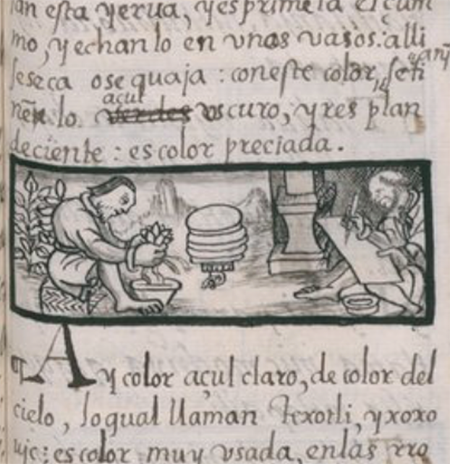 an esta yerua, y esprimele el çum
mo, y echan lo en vnos vasos: alli
seseca o se quaja: con este color se ti
ñe lo açul verdes oscuro, y res plan
deciente: es color preciada.
Ay color açul claro, de color del
cielo, lo qual llaman texotli, y xoxo
uic: es color muy vsada, en las rro